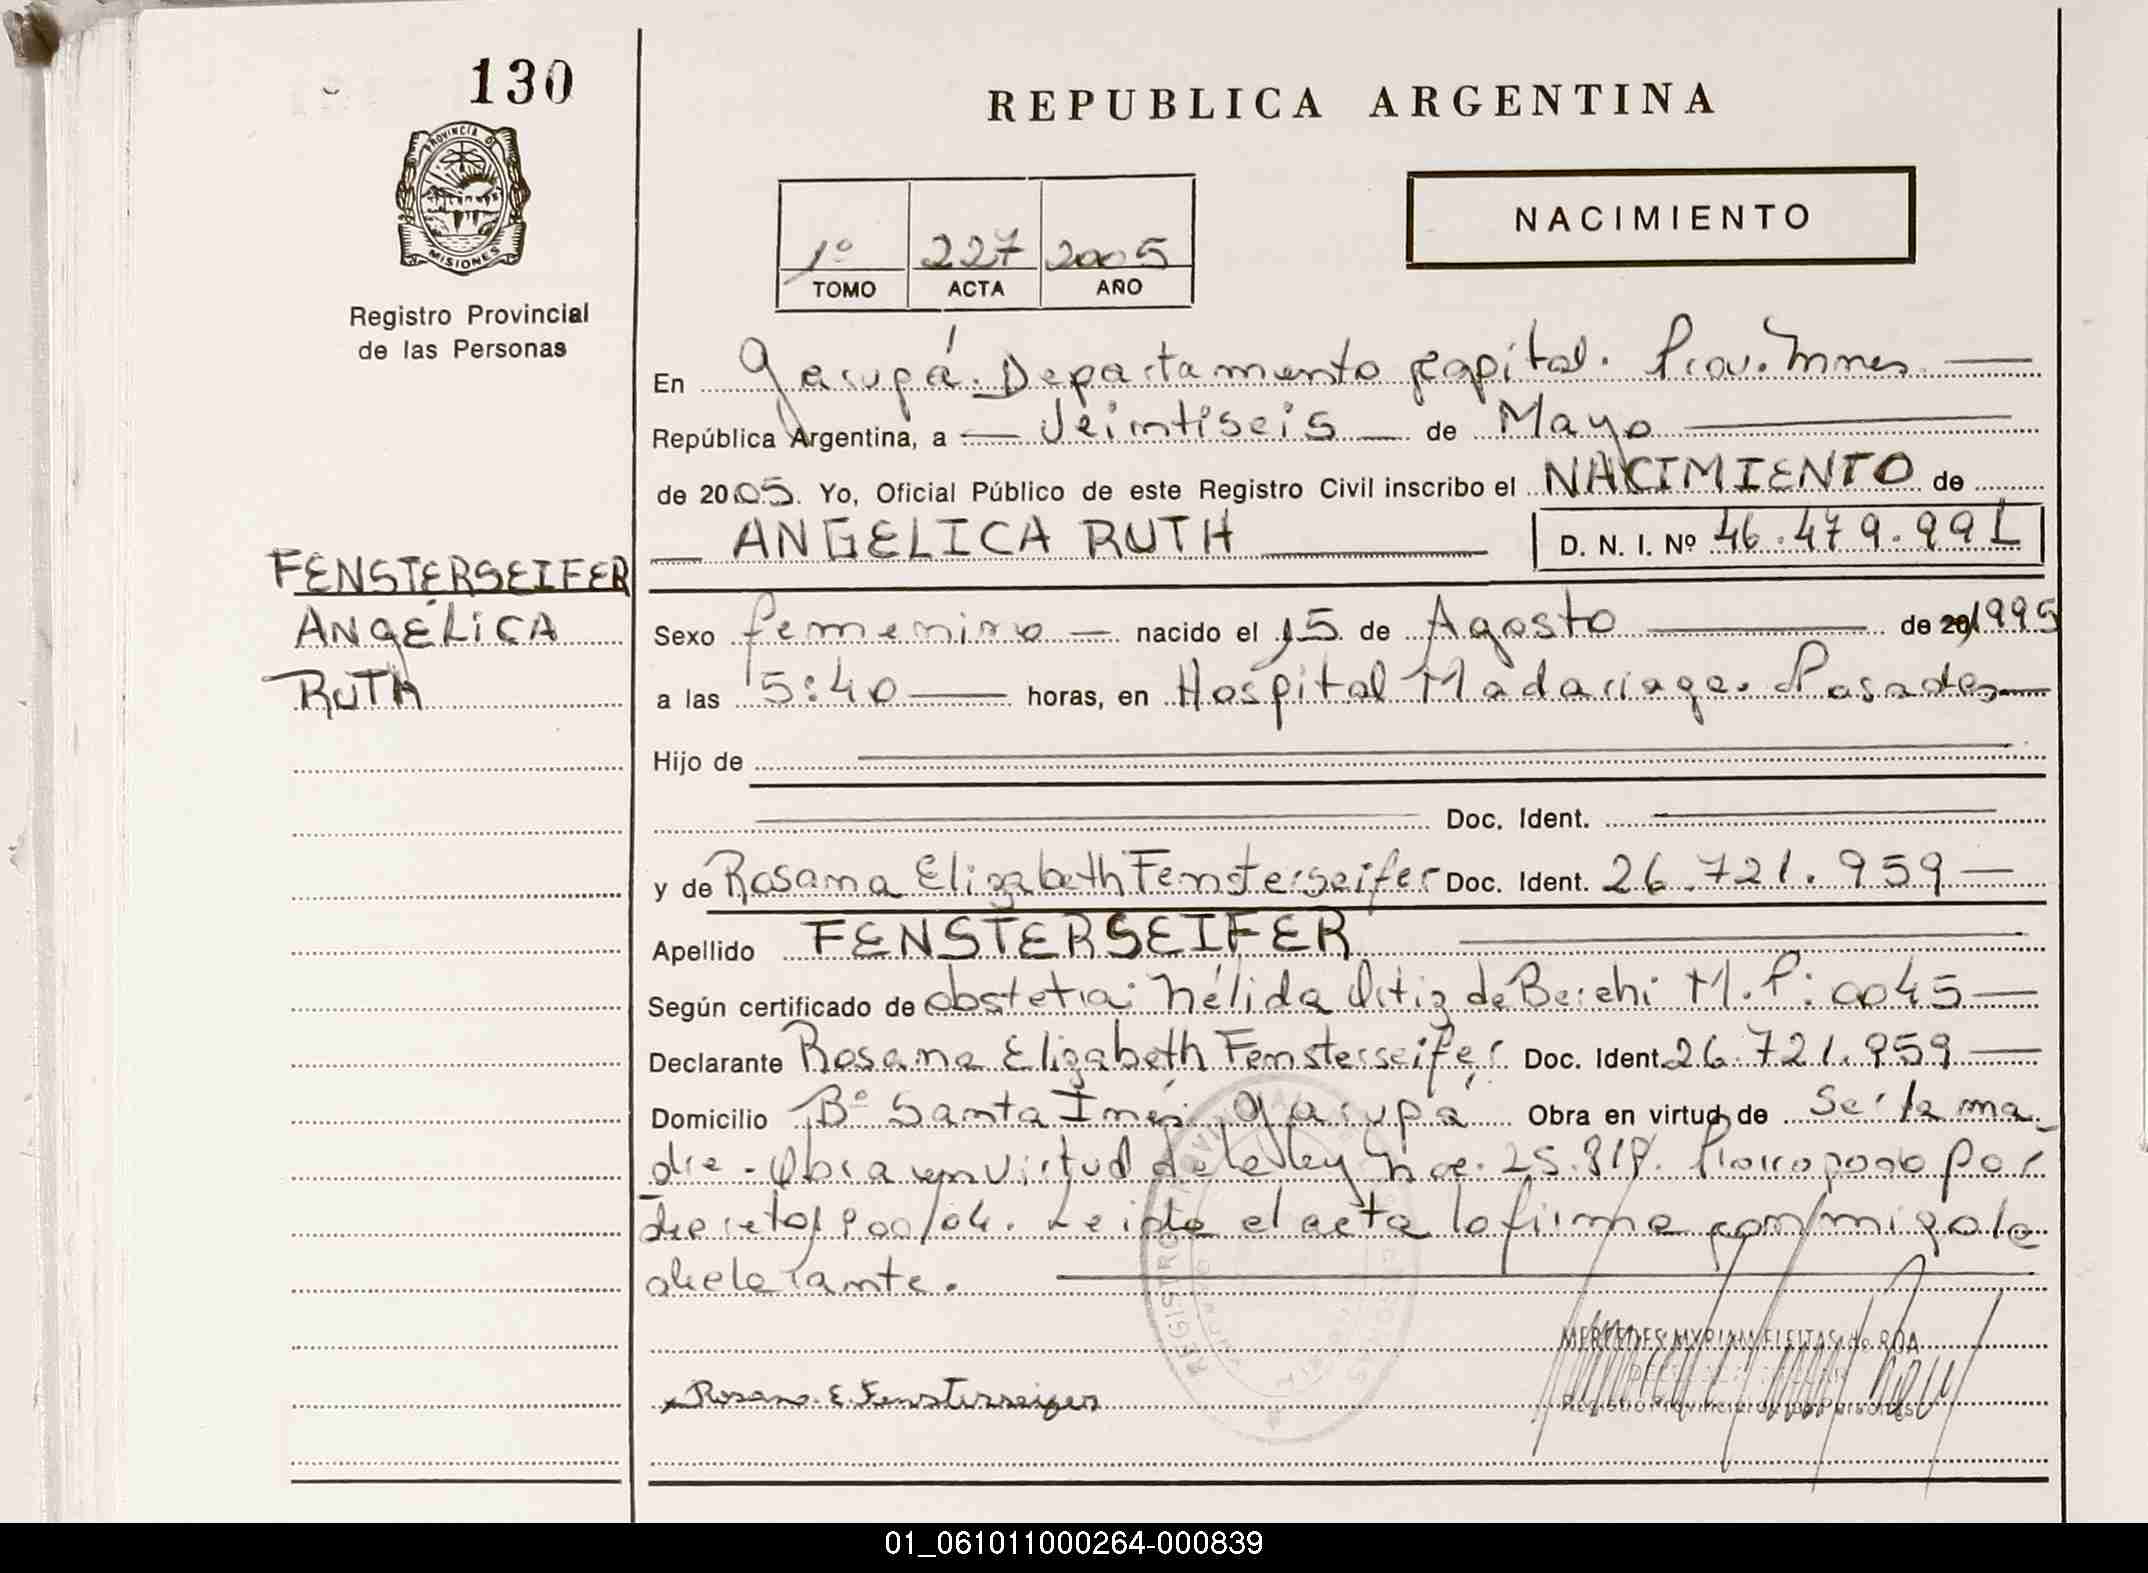 130
REPUBLICA ARGENTINA
PROVINCIA D
MISIONES
Registro Provincial
de las Personas
NACIMIENTO
1º 227 2005
TOMO ACTA AÑO
En Garupá. Departamento Capital. Prov. Mnes
República Argentina, a Veintiseis de Mayo
de 2005. Yo, Oficial Público de este Registro Civil inscribo el NACIMIENTO de
ANGELICA RUTH D. N. I. Nº 46.479.991
FENSTERSEIFER
ANGÉLICA
RUTH
Sexo femenino nacido el 15 de Agosto de 20 1995
a las 15:40 horas, en Hospital Madariaga. Posadas
Hijo de
Doc. Ident.
y de Rosana Elizabeth Fensterseifer Doc. Ident. 26.721.959
Apellido FENSTERSEIFER
Según certificado de obstetra: Nélida Ortiz de M.P: 0045
Declarante Rosana Elizabeth Fensterseifer Doc. Ident. 26.721.959
Domicilio Bº Santa Inés Garupá Obra en virtud de Ser la ma
dre. Obra en virtud de la ley Nº 25.819. por
decreto 900/04. Leida el acta la firma conmigo la
declarante.
REGISTRO PROVINCIAL
Rosana E. Fensterseifer
MERCEDES MYRIAM FLEITAS de ROA
Registro Provincial de las Personas
01_061011000264-000839